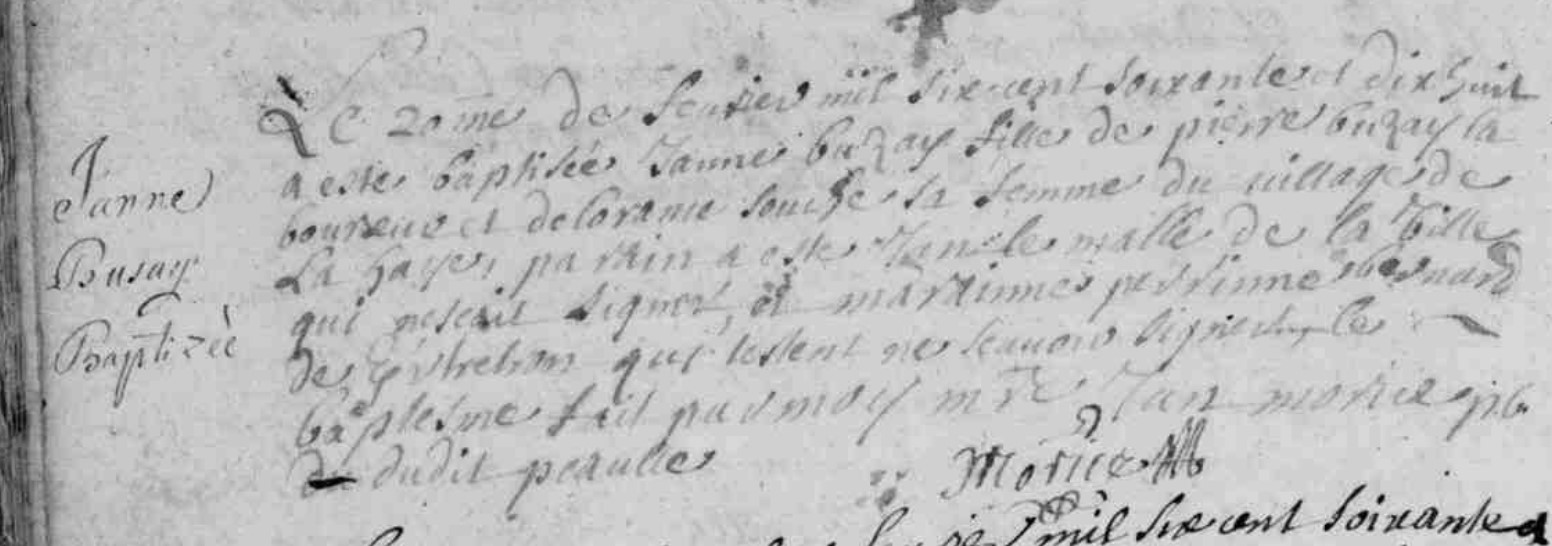 Janne
Busay
Baptizèe
Le 20me de feurier mil six cent soixante et dix huit
a este baptisée Janne buzay fille de pierre buzay la
boureur et de lorance sa femme du uillage de
La haye, parain a este Jan le malle de la Ville
qui ne scait signer, et marainne perrinne besnard
de qui testent ne scauoir signer, le
baptesme fait par moy mre Jan morice pb
dudit
Morice
mil six cent soixante